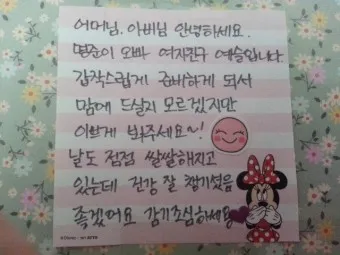 어머님, 아버님 안녕하세요.
명준이 오빠 여자친구 예슬입니다.
갑작스럽게 준비하게 되서
맘에 드실지 모르겠지만
이쁘게 봐주세요~!
날도 점점 쌀쌀해지고
있는데 건강 잘 챙기셨음
좋겠어요 감기조심하세용